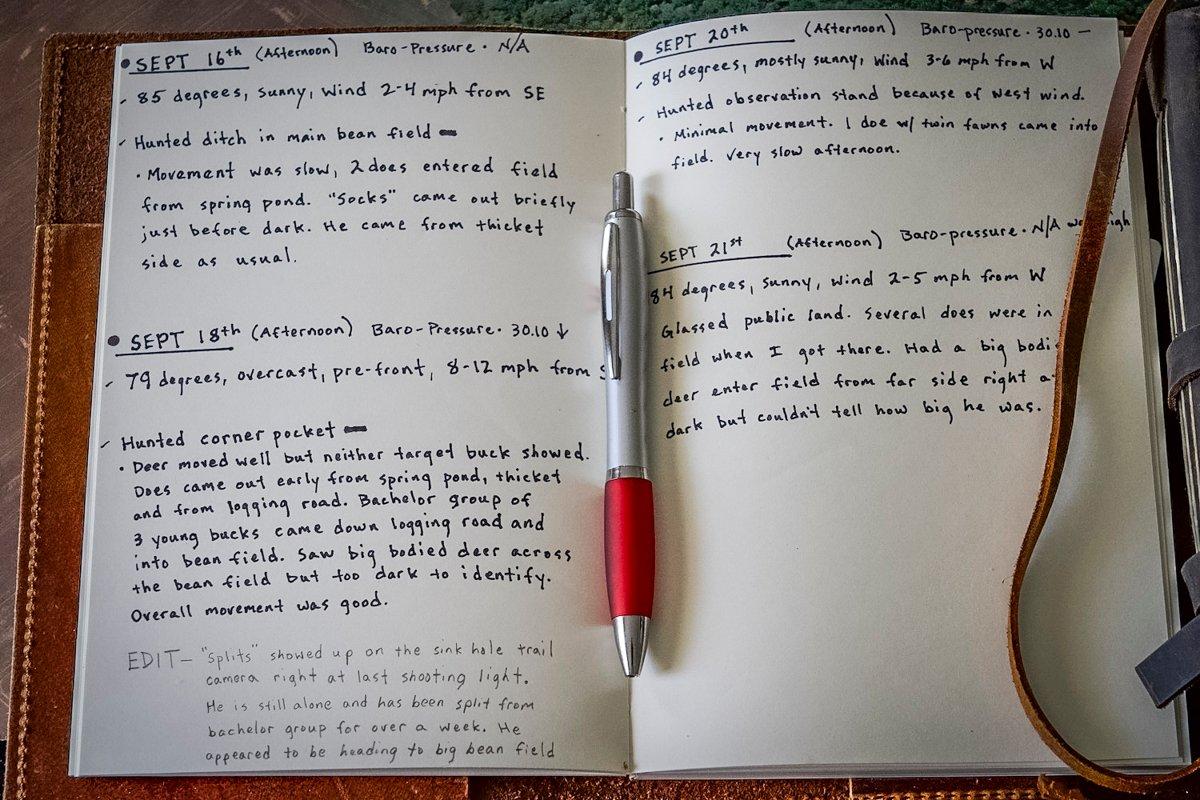 SEPT 16th (Afternoon) Baro-Pressure • N/A
85 degrees, sunny, wind 2-4 mph from SE
Hunted ditch in main bean field
• Movement was slow, 2 does entered field
from spring pond. "Socks" came out briefly
just before dark. He came from thicket
side as usual.
SEPT 18th (Afternoon) Baro-Pressure • 30.10 ↓
79 degrees, overcast, pre-front, 8-12 mph from
Hunted corner pocket
• Deer moved well but neither target buck showed.
Does came out early from spring pond, thicket
and from logging road. Bachelor group of
3 young bucks came down logging road and
into bean field. Saw big bodied deer across
the bean field but too dark to identify.
Overall movement was good.
EDIT- "Splits" showed up on the sink hole trail
camera right at last shooting light.
He is still alone and has been split from
bachelor group for over a week. He
appeared to be heading to big bean field
SEPT 20th (Afternoon) Baro-pressure • 30.10 —
84 degrees, mostly sunny, wind 3-6 mph from W
Hunted observation stand because of west wind.
• Minimal movement. 1 doe w/ twin fawns came into
field. Very slow afternoon.
SEPT 21st (Afternoon) Baro-pressure • N/A
84 degrees, sunny, wind 2-5 mph from W
Glassed public land. Several does were in
field when I got there. Had a big
deer enter field from far side right
dark but couldn't tell how big he was.